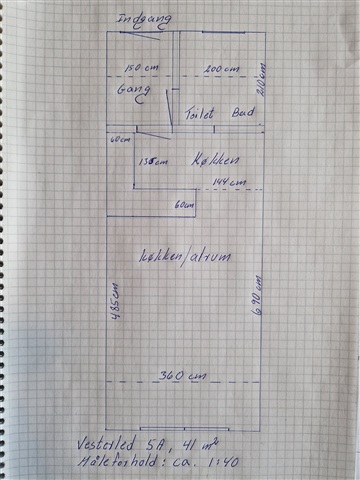 Indgang
150 cm
200 cm
210 cm
Gang
Toilet Bad
60 cm
135 cm
Køkken
144 cm
60 cm
køkken/alrum
485 cm
690 cm
360 cm
Vesterled 5A, 41 m²
Måleforhold: ca. 1:40